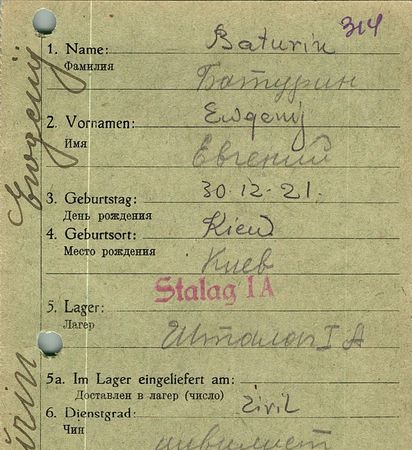 314
1. Name: Baturin
Фамилия Батурин
2. Vornamen: Ewgenij
Имя Евгений
3. Geburtstag: 30.12.21.
День рождения
4. Geburtsort: Kiew
Место рождения Киев
Stalag IA
5. Lager:
Лагер Шталаг I A
5a. Im Lager eingeliefert am:
Доставлен в лагер (число)
6. Dienstgrad: Zivil
Чин
Ewgenij